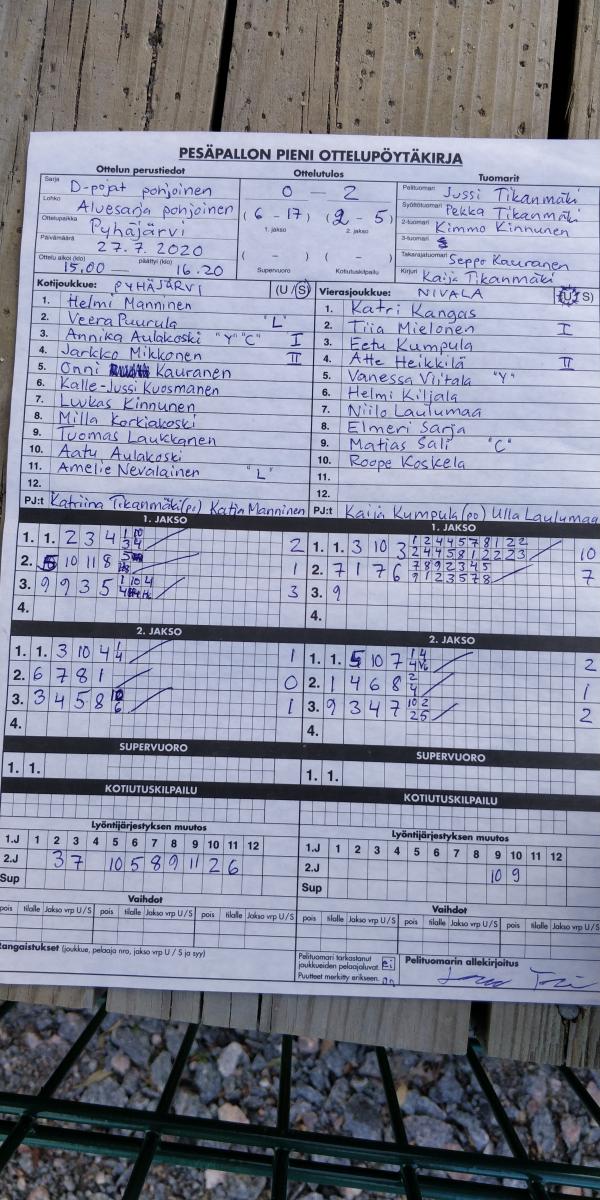 PESÄPALLON PIENI OTTELUPÖYTÄKIRJA
Ottelun perustiedot
Sarja D-pojat pohjoinen
Lohko Aluesarja pohjoinen
Ottelupaikka Pyhäjärvi
Päivämäärä 27.7.2020
Ottelu alkoi (klo) 15.00 — päättyi (klo) 16.20
Ottelutulos
0 — 2
(6 - 17) (2 - 5)
1. jakso 2. jakso
( - ) ( - )
Supervuoro Kotiutuskilpailu
Tuomarit
Pelituomari Jussi Tikanmäki
Syöttötuomari Pekka Tikanmäki
2-tuomari Kimmo Kinnunen
3-tuomari
Takarajatuomari Seppo Kauranen
Kirjuri Kaija Tikanmäki
Kotijoukkue: PYHÄJÄRVI (U/S)
1. Helmi Manninen
2. Veera Puurula "L"
3. Annika Aulakoski "Y" "C" I
4. Jarkko Mikkonen II
5. Onni Kauranen
6. Kalle-Jussi Kuosmanen
7. Luukas Kinnunen
8. Milla Korkiakoski
9. Tuomas Laukkanen
10. Aatu Aulakoski
11. Amelie Nevalainen "L"
12.
PJ:t Katriina Tikanmäki (po) Katja Manninen
Vierasjoukkue: NIVALA (U/S)
1. Katri Kangas
2. Tiia Mielonen I
3. Eetu Kumpula
4. Atte Heikkilä II
5. Vanessa Viitala "Y"
6. Helmi Kiljala
7. Niilo Laulumaa
8. Elmeri Sarja
9. Matias Sali "C"
10. Roope Koskela
11.
12.
PJ:t Kaija Kumpula (po) Ulla Laulumaa
1. JAKSO
1. 1. 2 3 4 2
2. 10 11 8 1
3. 9 9 3 5 3
4.
2. JAKSO
1. 1. 3 10 4 1
2. 6 7 8 1 0
3. 3 4 5 8 1
4.
SUPERVUORO
1. 1.
KOTIUTUSKILPAILU
Lyöntijärjestyksen muutos
1.J 1 2 3 4 5 6 7 8 9 10 11 12
2.J 3 7 10 5 8 9 11 2 6
Sup
Vaihdot
pois tilalle Jakso vrp U / S pois tilalle Jakso vrp U / S pois tilalle
Rangaistukset (joukkue, pelaaja nro, jakso vrp U / S ja syy)
1. JAKSO
1. 1. 3 10 3 1 2 4 4 5 7 8 1 2 2 10
2 4 4 5 8 1 2 2 2 3
2. 7 1 7 6 7 8 9 2 3 4 5 7
9 1 2 3 5 7 8
3. 9
4.
2. JAKSO
1. 1. 5 10 7 2
2. 1 4 6 8 2 1
4
3. 9 3 4 7 10 2 2
2 5
4.
SUPERVUORO
1. 1.
KOTIUTUSKILPAILU
Lyöntijärjestyksen muutos
1.J 1 2 3 4 5 6 7 8 9 10 11 12
2.J 10 9
Sup
Vaihdot
pois tilalle Jakso vrp U / S pois tilalle Jakso vrp U / S pois tilalle
Pelituomari tarkastanut
joukkueiden pelaajaluvat ei
Puutteet merkitty erikseen
Pelituomarin allekirjoitus